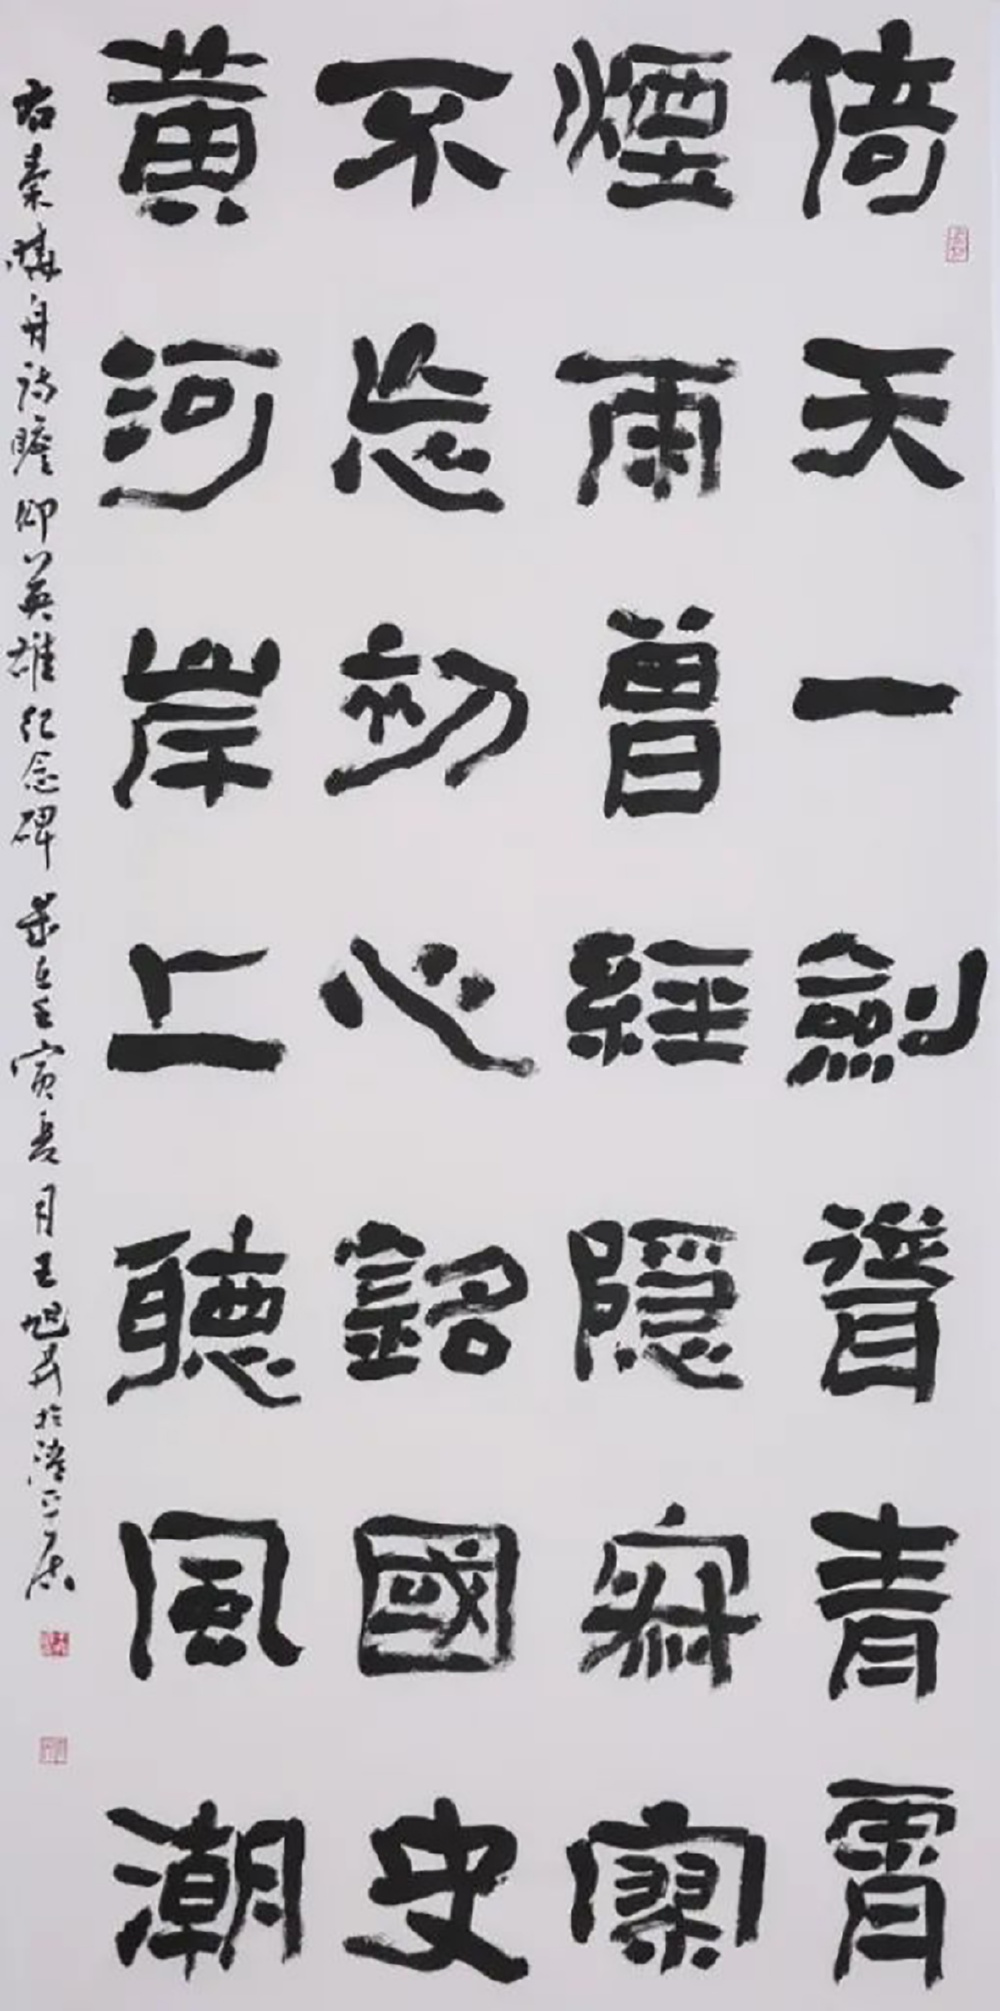 倚天一劍㬱青霄
煙雨曾經隱寂寥
不忘初心銘國史
黃河岸上聽風潮
右秦 舟詩瞻仰英雄紀念碑 歲在壬寅 月王旭 於 居